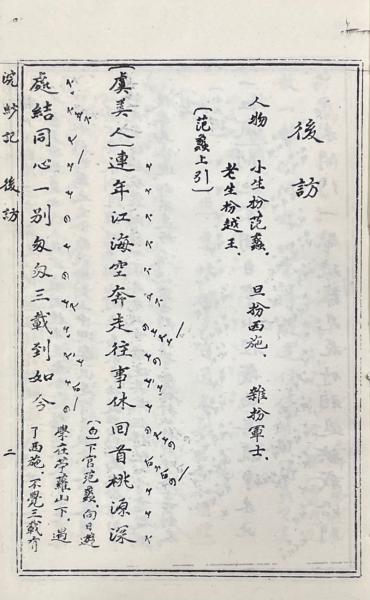 後訪
人物 小生扮范蠡、 旦扮西施、 雜扮軍士、
老生扮越王、
〔范蠡上引〕
〔虞美人〕連年江海空奔走往事休回首桃源深
處結同心一别匆匆三載到如今
〔白〕下官范蠡、向日遊
學在苧蘿山下、遇
了西施、不覺三載有
浣紗記 後訪 二